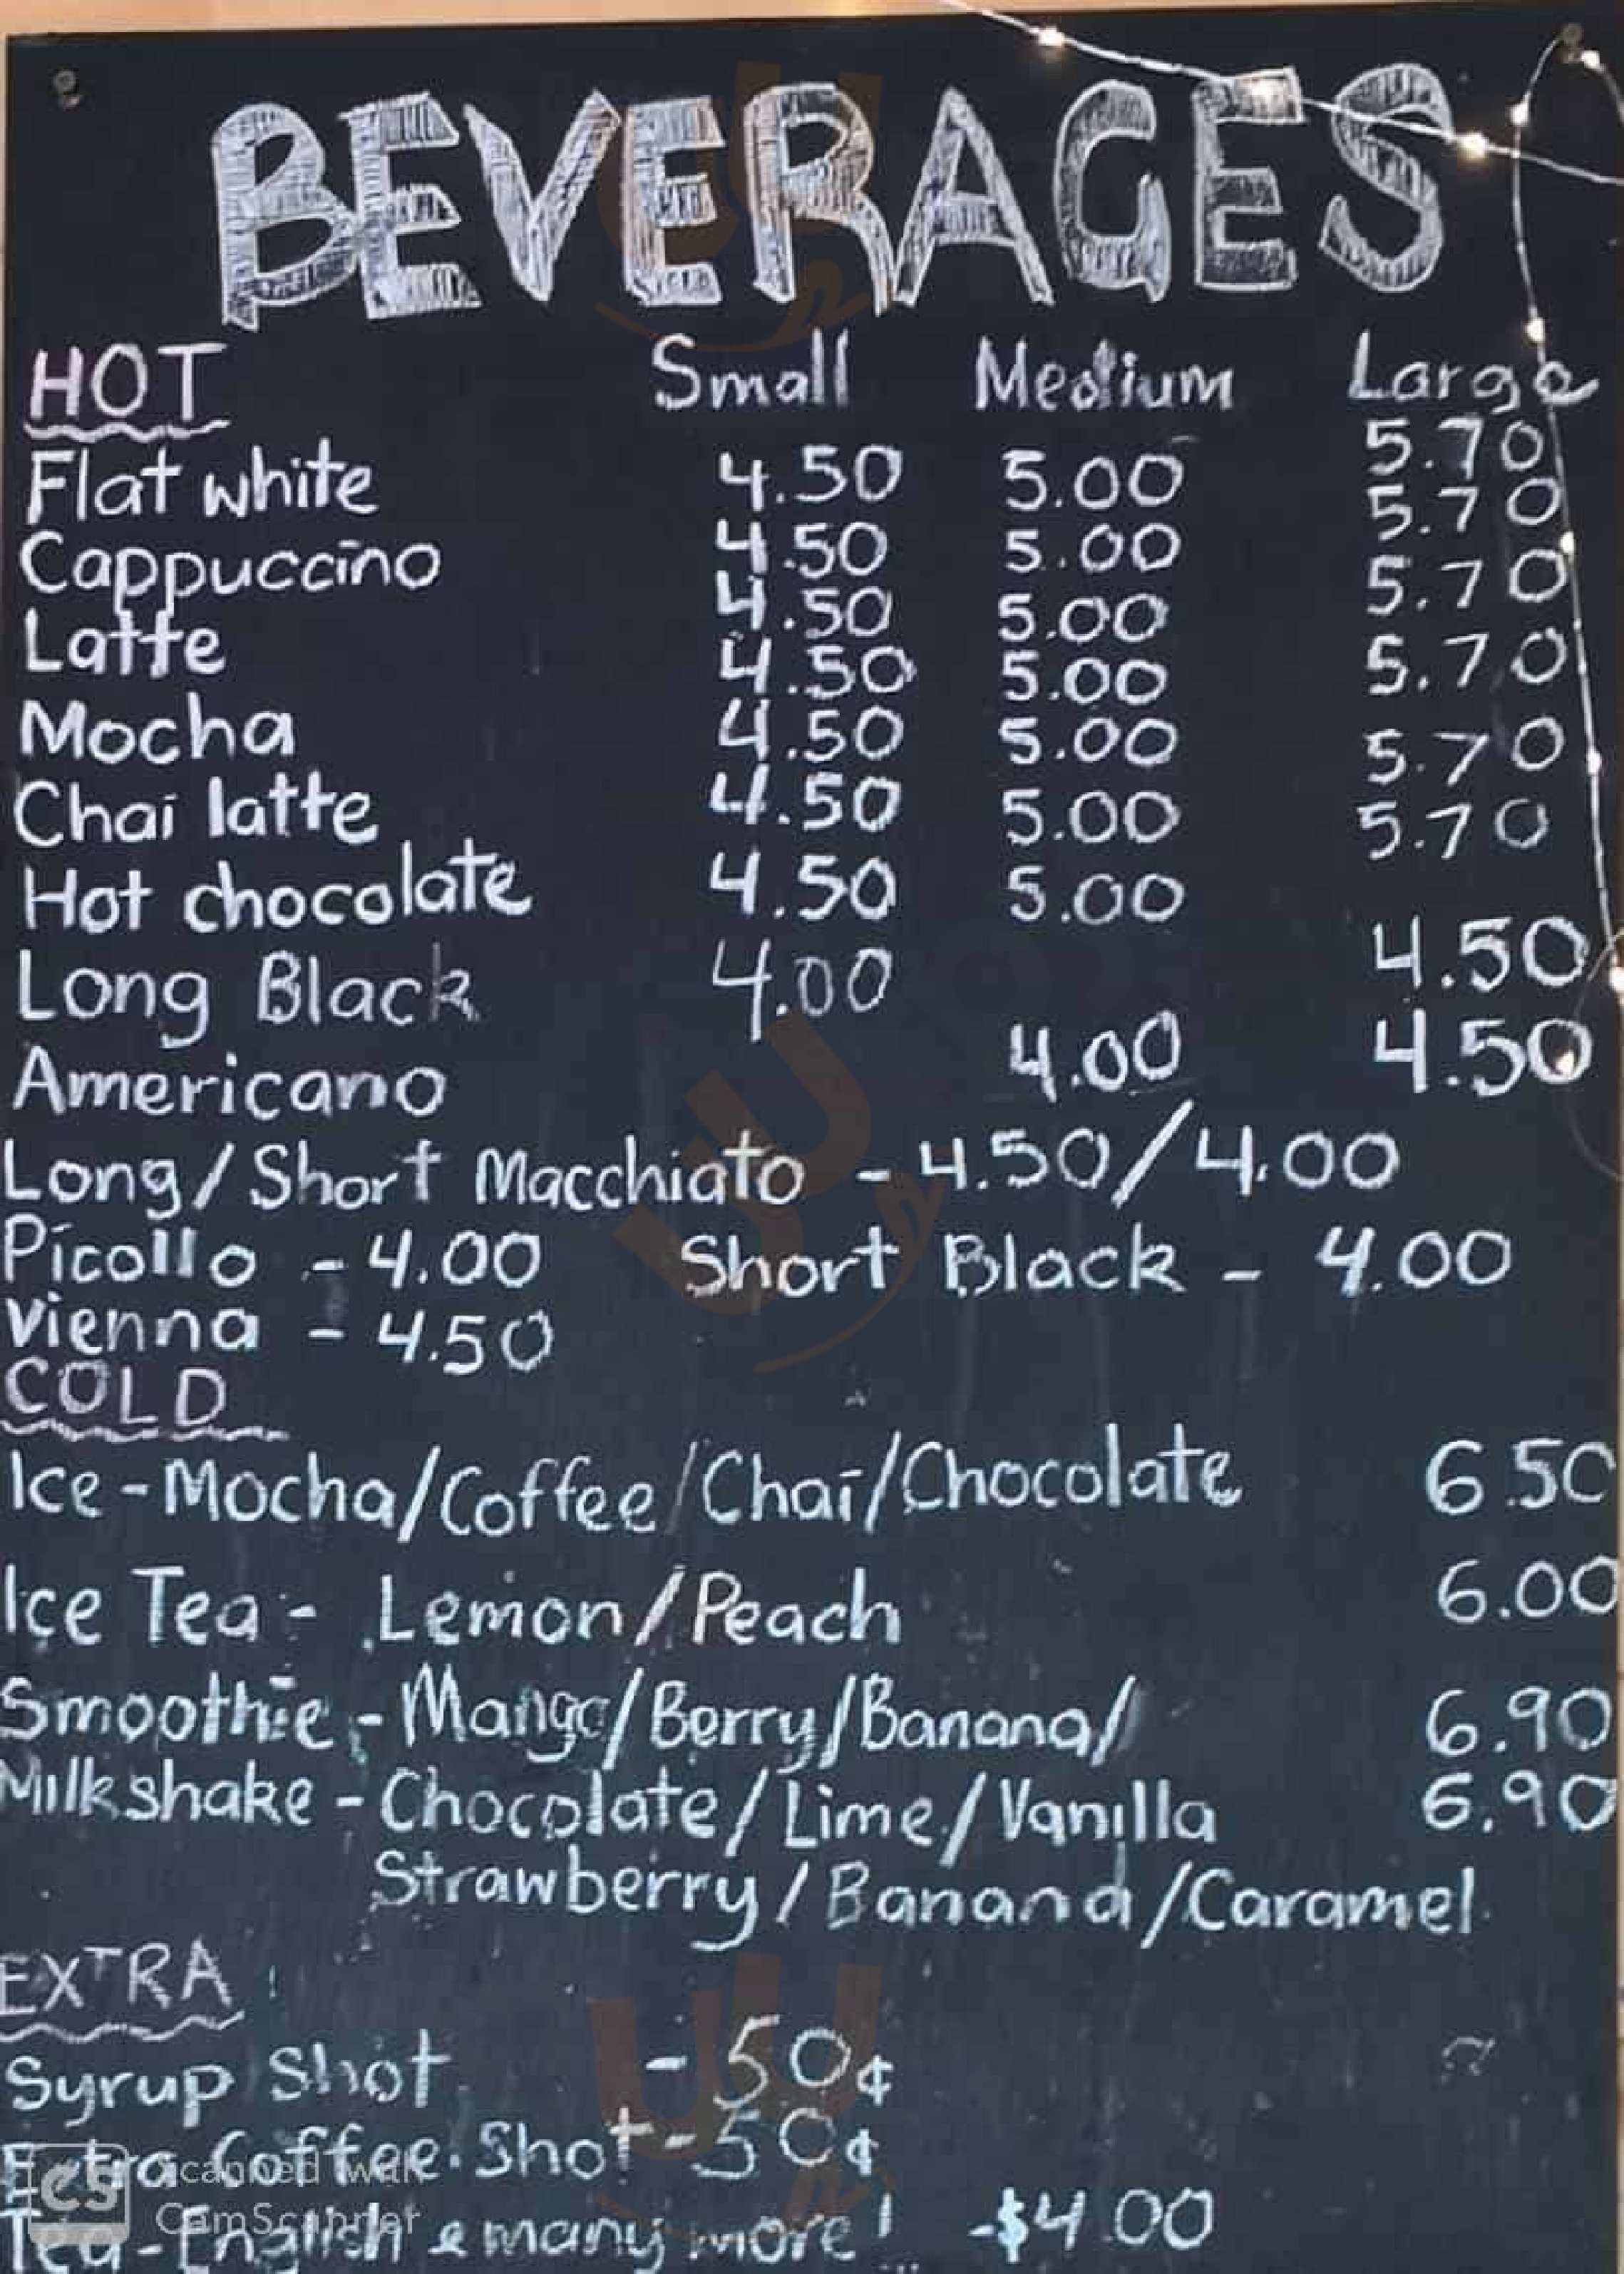 BEVERAGES
HOT Small Medium Large
Flat white 4.50 5.00 5.70
Cappuccino 4.50 5.00 5.70
Latte 4.50 5.00 5.70
Mocha 4.50 5.00 5.70
Chai latte 4.50 5.00 5.70
Hot chocolate 4.50 5.00 5.70
4.50 5.00
Long Black 4.00 4.50
Americano 4.00 4.50
Long/Short Macchiato - 4.50/4.00
Picollo - 4.00 Short Black - 4.00
Vienna - 4.50
COLD
Ice-Mocha/Coffee/Chai/Chocolate 6.50
Ice Tea - Lemon/Peach 6.00
Smoothie - Mango/Berry/Banana/ 6.90
Milkshake - Chocolate/Lime/Vanilla 6.90
Strawberry/Banana/Caramel
EXTRA
Syrup Shot - 50¢
Extra Coffee Shot - 50¢
Tea - English & many more! - $4.00
CS Scanned with
CamScanner